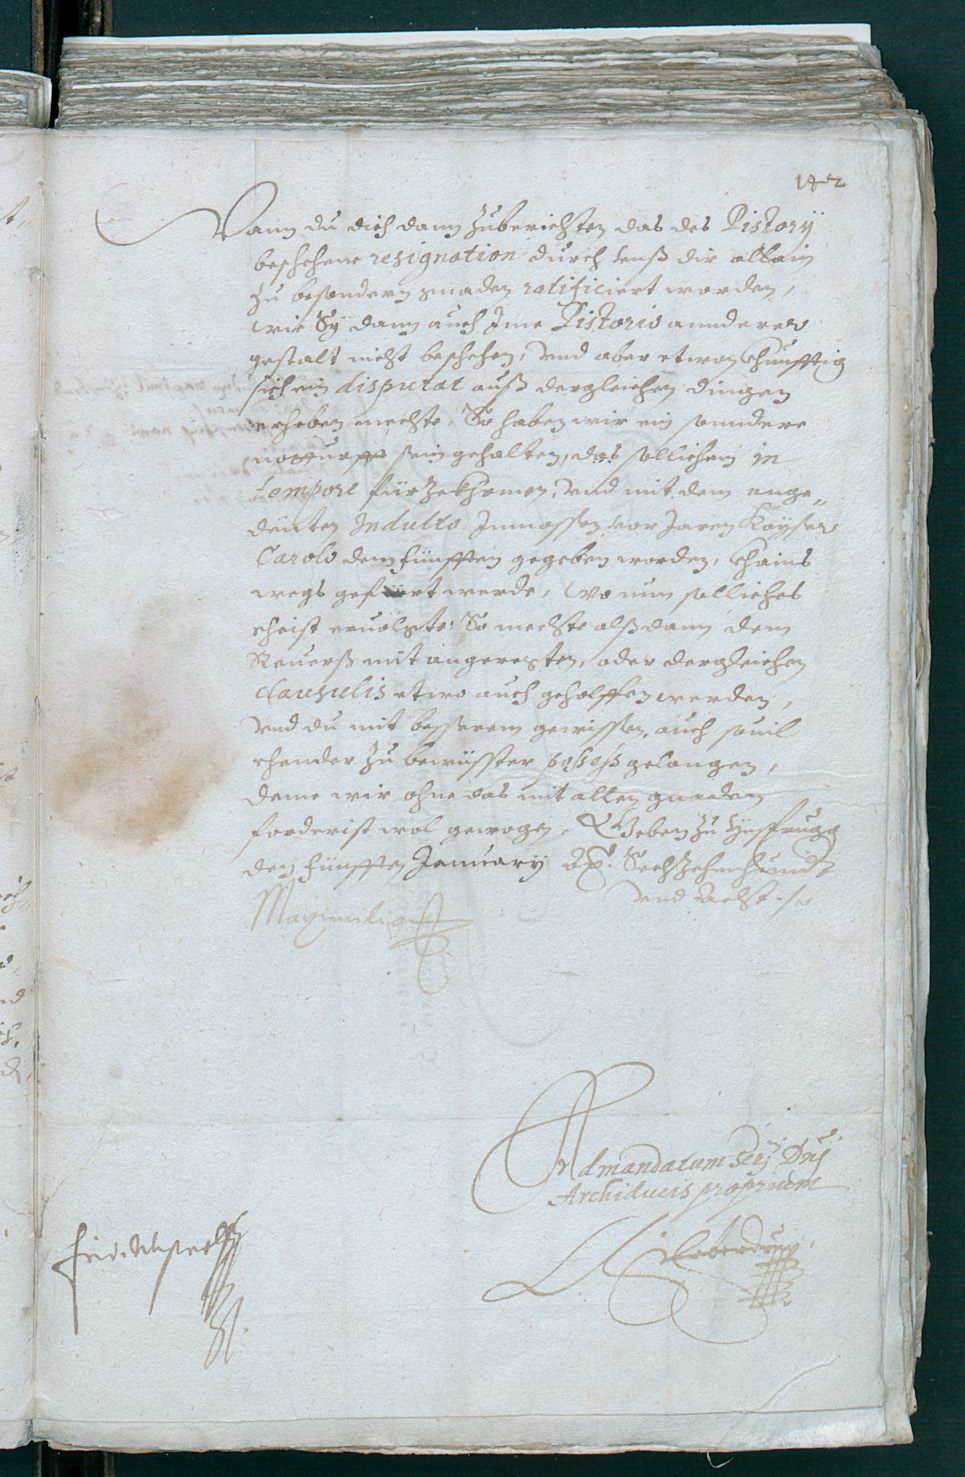 142
Wann du dich dann zuberichten das des Pistorÿ
beschehene resignation durch vnß dir allain
zu besondern gnaden ratificiert worden,
wie Sÿ dann auch Ime Pistorio annderer
gestalt nicht beschehen, vnd aber etwan khunfftig
sich ein disputat auß dergleichen dingen
erheben mechte, So haben wir ein sonndere
notturfft sein gehalten, das sollichem in
tempore fürzekhomen, vnd mit dem ange„
deuten Indulto, Inmassen vor Jaren Kaÿser
Carolo dem fünfften gegeben worden, khains
wegs gefüert werde, Wo nun solliches
eruolgte: So mechte alßdann dem
Reuerß mit angeregten, oder dergleichen
clausulis etwo auch geholffen werden,
vnd du mit besserem gewissen, auch souil
ehender zu bewüsster possess gelangen,
deme wir ohne das mit allen gnaden
forderist wol gewogen, Geben zu Ynsprugg
den fünfften January Aº. Sechzehenhundt
vnd Acht.
Maximilian
Ad mandatum Serᵐⁱ Dnj
Archiducis proprium